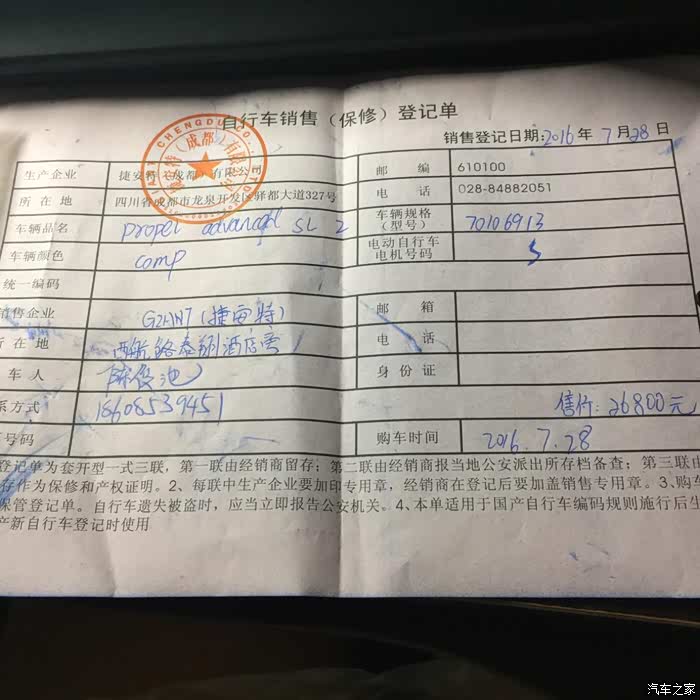 自行车销售（保修）登记单
销售登记日期:2016年7月28日
生产企业 捷安特（成都）有限公司 邮编 610100
所在地 四川省成都市龙泉开发区驿都大道327号 电话 028-84882051
车辆品名 propel advanced SL 2 车辆规格（型号） 70106913
车辆颜色 comp 电动自行车电机号码 S
统一编码
销售企业 (捷安特) 邮箱
所在地 酒店旁 电话
车人 陈俊池 身份证
系方式 18608539451 售价:26800元
号码 购车时间 2016.7.28
登记单为套开型一式三联，第一联由经销商留存；第二联由经销商报当地公安派出所存档备查；第三联由
存作为保修和产权证明。2、每联中生产企业要加印专用章，经销商在登记后要加盖销售专用章。3、购车
保管登记单。自行车遗失被盗时，应当立即报告公安机关。4、本单适用于国产自行车编码规则施行后生
产新自行车登记时使用
汽车之家